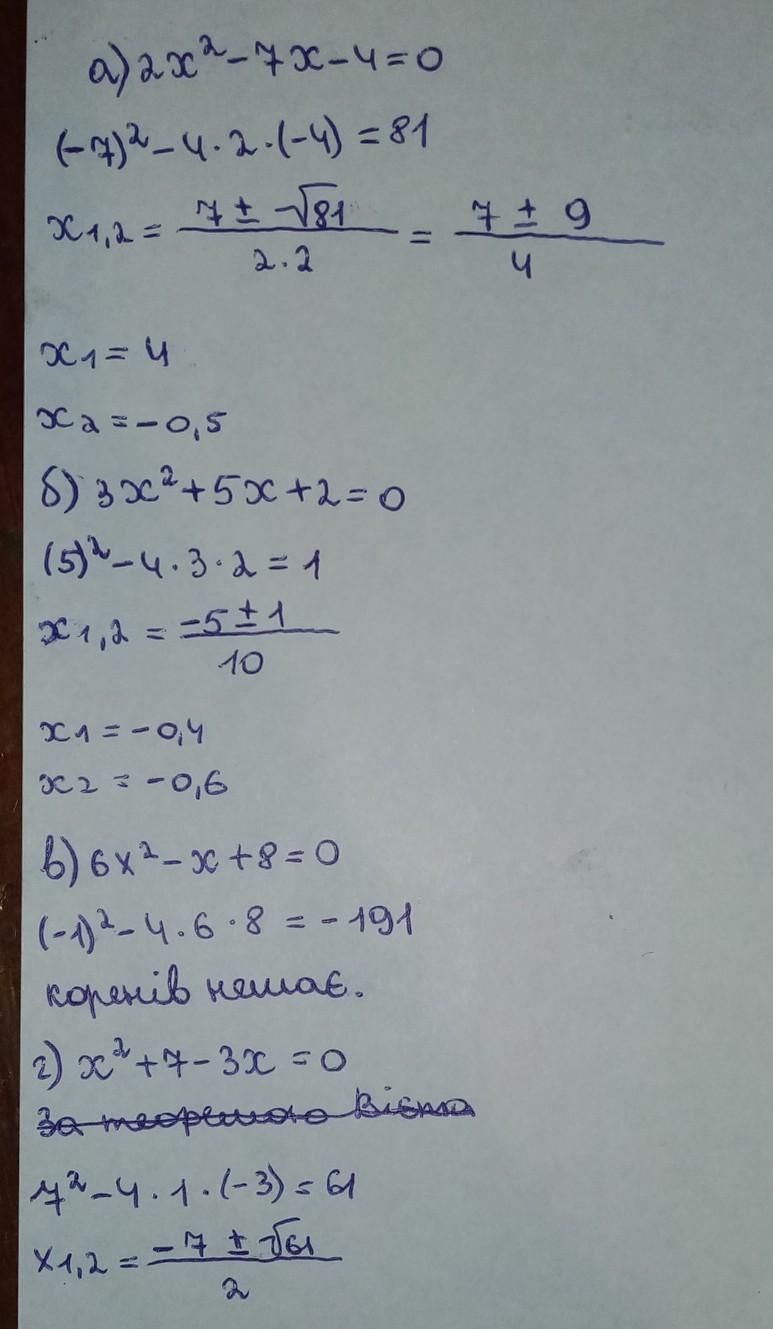 а) 2x² - 7x - 4 = 0
(-7)² - 4 · 2 · (-4) = 81
x1,2 = (7 ± √81)/(2 · 2) = (7 ± 9)/4
x1 = 4
x2 = -0,5
б) 3x² + 5x + 2 = 0
(5)² - 4 · 3 · 2 = 1
x1,2 = (-5 ± 1)/10
x1 = -0,4
x2 = -0,6
в) 6x² - x + 8 = 0
(-1)² - 4 · 6 · 8 = -191
коренів немає.
г) x² + 7 - 3x = 0
За теоремою Вієта
7² - 4 · 1 · (-3) = 61
x1,2 = (-7 ± √61)/2